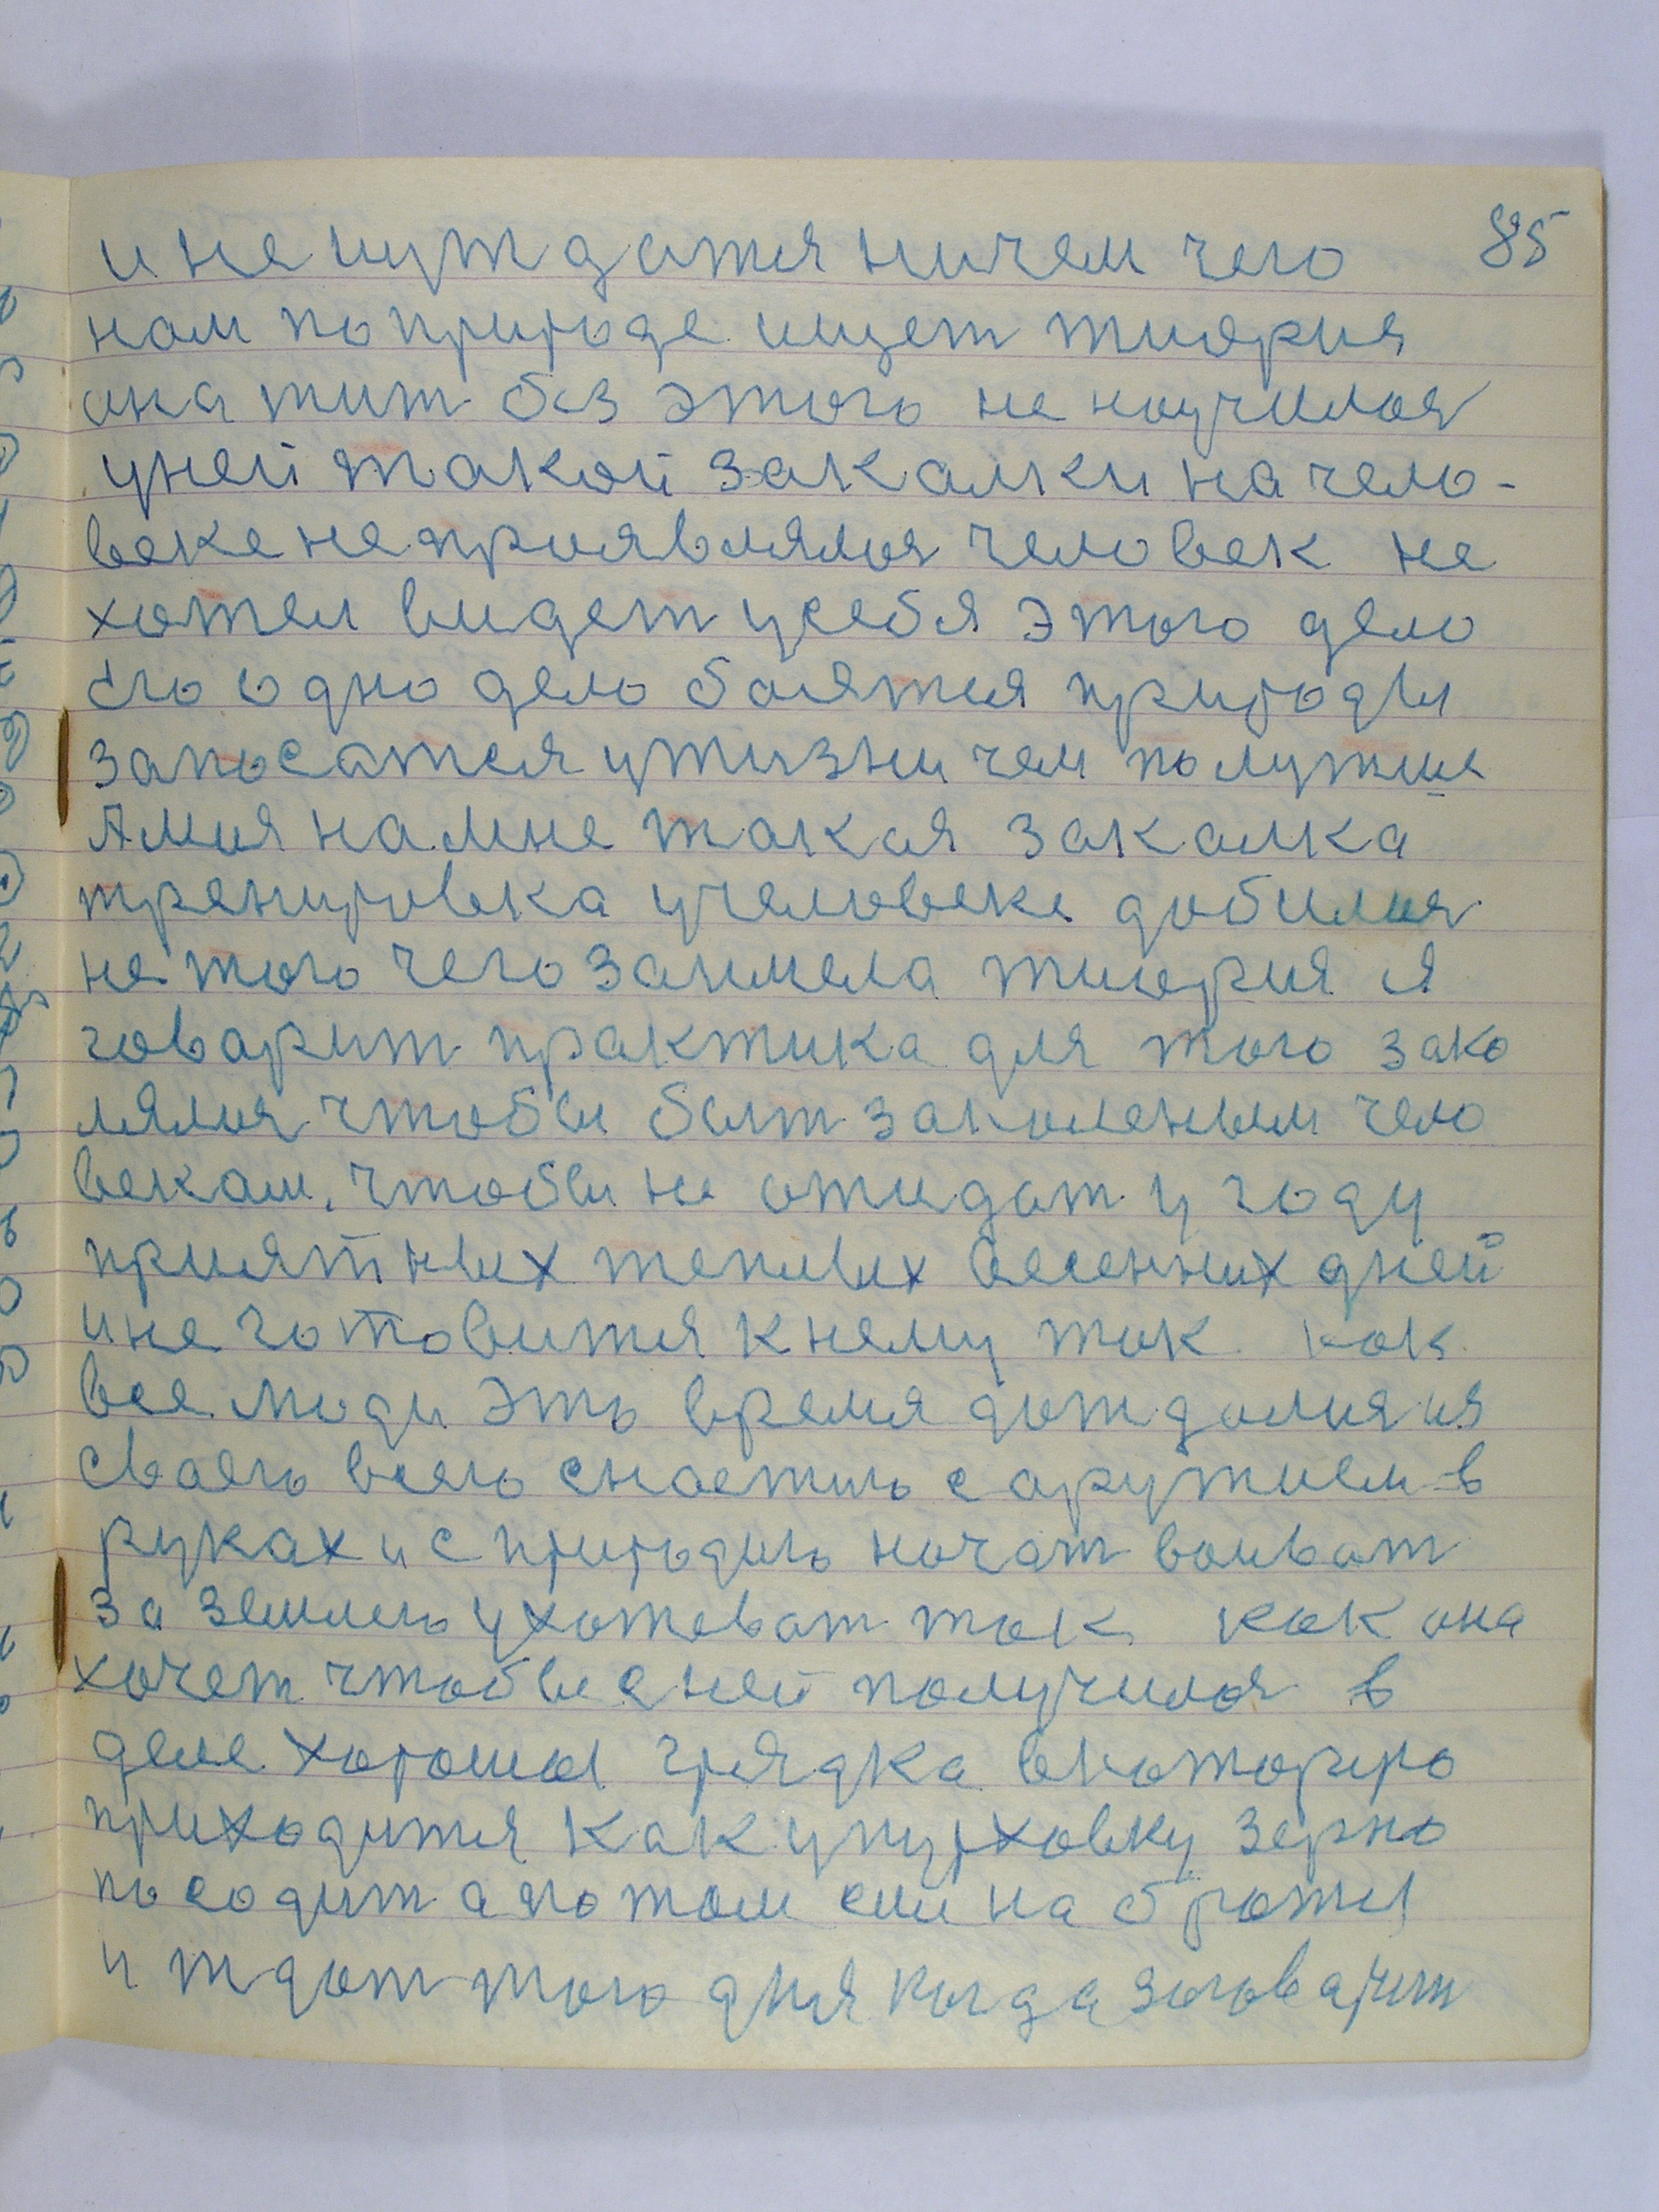 85
и не нуждатся ничем чего
нам по природе ищет тиория
она жит без этого не научилася
уней такой закалки на чело-
веке не проявлялася человек не
хотел видет усебя этого дело
его одно дело боятся природы
запосатся ужизни чем полутше
А моя на мне такая закалка
тренировка учеловеке добилася
не того чего заимела тиория я
говарит практика для того зака
лялся чтобы быт закаленым чело
векам, чтобы не ожидат у году
приятных теплых весенних дней
и не готовится к нему так как
все люди это время дождалися
сваею всею снастию с аружием в
руках и с природию начат воиват
за землею ухажеват так как она
хочет чтобы с ней получилося в
деле хорошая грядка вкоторую
приходится как упуховку зерно
посодит а потом сил на братся
и ждат того дня когда заговарит